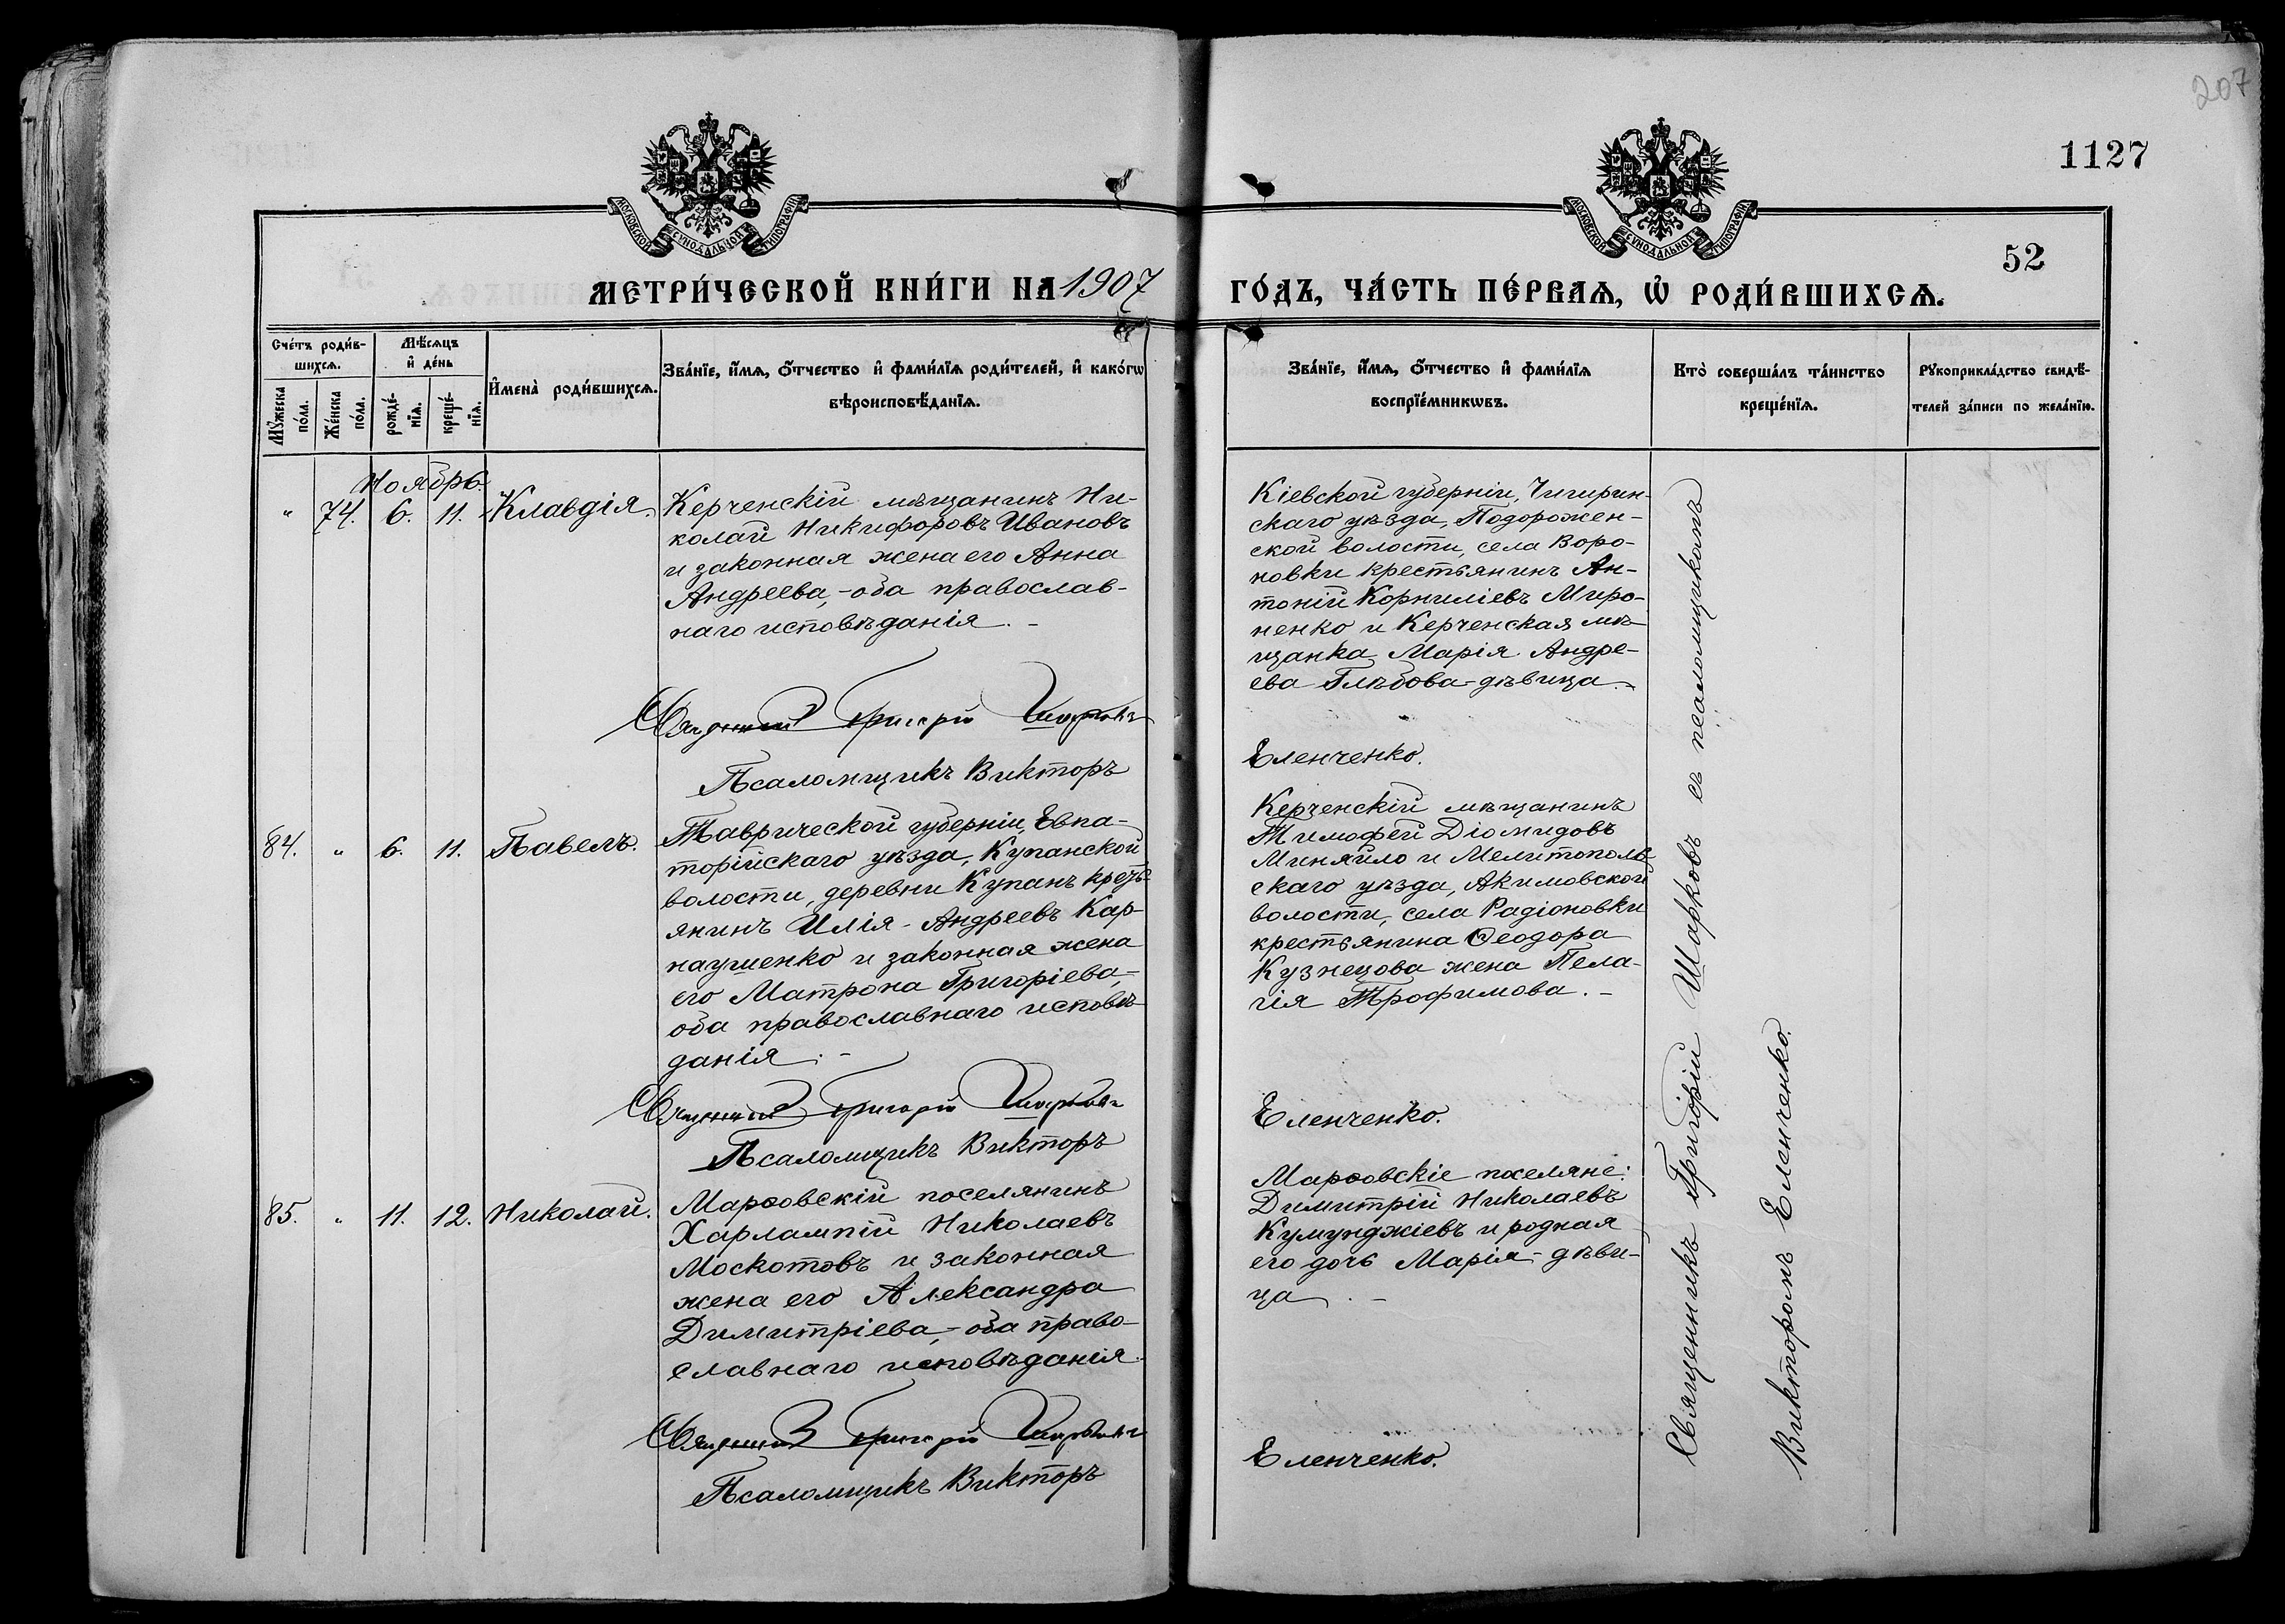 207
1127
52
МОСКОВСКОЙ СѴНОДАЛЬНОЙ ТИПОГРАФІИ
МОСКОВСКОЙ СѴНОДАЛЬНОЙ ТИПОГРАФІИ
МЕТРИ́ЧЕСКОЙ КНИ́ГИ НА 1907
ГО́ДЪ, ЧА́СТЬ ПЕ́РВАѦ, Ѡ҆ РОДИ́ВШИХСѦ.
Сче́тъ роди́в-
шихсѧ.
Мѣ́сѧцъ
и҆ де́нь
Мꙋ́жеска
по́ла.
Же́нска
по́ла.
рожде́-
нїѧ.
креще́-
нїѧ.
И҆мена̀ роди́вшихсѧ.
Зва́нїе, и҆́мѧ, ѻ҆́тчество и҆ фами́лїѧ роди́телей, и҆ како́гѡ
вѣроисповѣ́данїѧ.
Зва́нїе, и҆́мѧ, ѻ҆́тчество и҆ фами́лїѧ
воспрїе́мникѡвъ.
Кто̀ соверша́лъ та́инство
креще́нїѧ.
Рꙋкоприкла́дство свидѣ́-
телей за́писи по жела́нїю.
Ноябрь.
" 74. 6. 11. Клавдія.
Керченскій мѣщанинъ Ни-
колай Никифоровъ Ивановъ
и законная жена его Анна
Андреева,-оба православ-
наго исповѣданія. -
Священникъ Григорій Шарковъ
Псаломщикъ Викторъ
Кіевской губерніи, Чигирин-
скаго уѣзда, Подорожен-
ской волости, села Воро-
новки крестьянинъ Ан-
тоній Корниліевъ Миро-
ненко и Керченская мѣ-
щанка Марія Андре-
ева Глѣбова-дѣвица.-
Еленченко.
84. " 6. 11. Павелъ.
Таврической губерніи, Евпа-
торійскаго уѣзда, Купанской
волости, деревни Купанъ крест-
янинъ Илія-Андреевъ Кар-
наушенко и законная жена
его Матрона Григоріева,-
оба православнаго исповѣ-
данія. -
Священникъ Григорій Шарковъ
Псаломщикъ Викторъ
Керченскій мѣщанинъ
Тимофей Діомидовъ
Миняйло и Мелитополь-
скаго уѣзда, Акимовской
волости, села Радіоновки
крестьянина Ѳеодора
Кузнецова жена Пела-
гія Трофимова. -
Еленченко.
85. " 11. 12. Николай.
Марѳовскій поселянинъ
Харлампій Николаевъ
Москотовъ и законная
жена его Александра
Димитріева,-оба право-
славнаго исповѣданія.
Священникъ Григорій Шарковъ
Псаломщикъ Викторъ
Марѳовскіе поселяне:
Димитрій Николаевъ
Кумунджіевъ и родная
его дочь Марія-дѣви-
ца. -
Еленченко.
Священникъ Григорій Шарковъ съ псаломщикомъ
Викторомъ Еленченко.